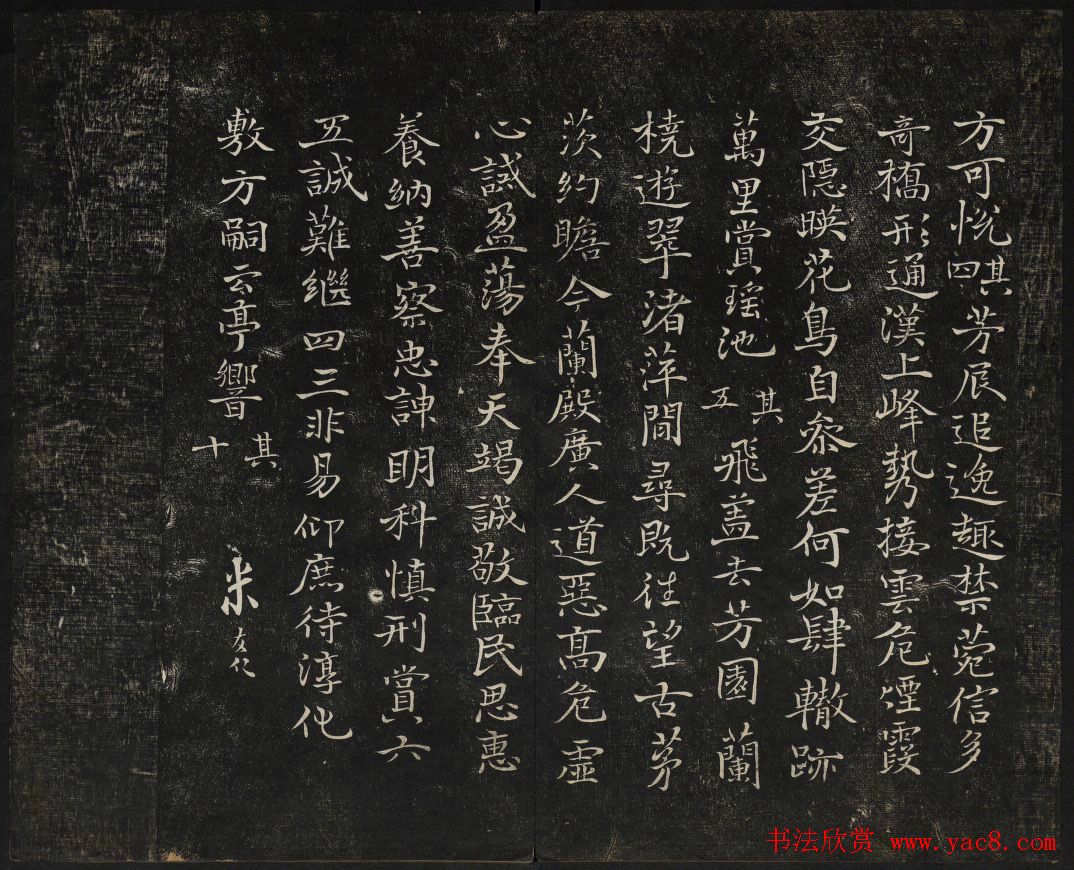 方可悅其四芳辰追逸趣禁菀信多
奇橋形通漢上峰勢接雲危煙霞
交隱暎花鳥自叅差何如肆轍跡
萬里賞瑤池其五飛盖去芳園蘭
橈遊翠渚萍間尋既往望古茅
茨約瞻今蘭殿廣人道惡高危虛
心誡盈蕩奉天竭誠敬臨民思惠
養納善察忠訷眀科慎刑賞六
五誠難繼四三非易仰庶待淳化
敷方嗣云亭響其十
米
书法欣赏 www.yac8.com